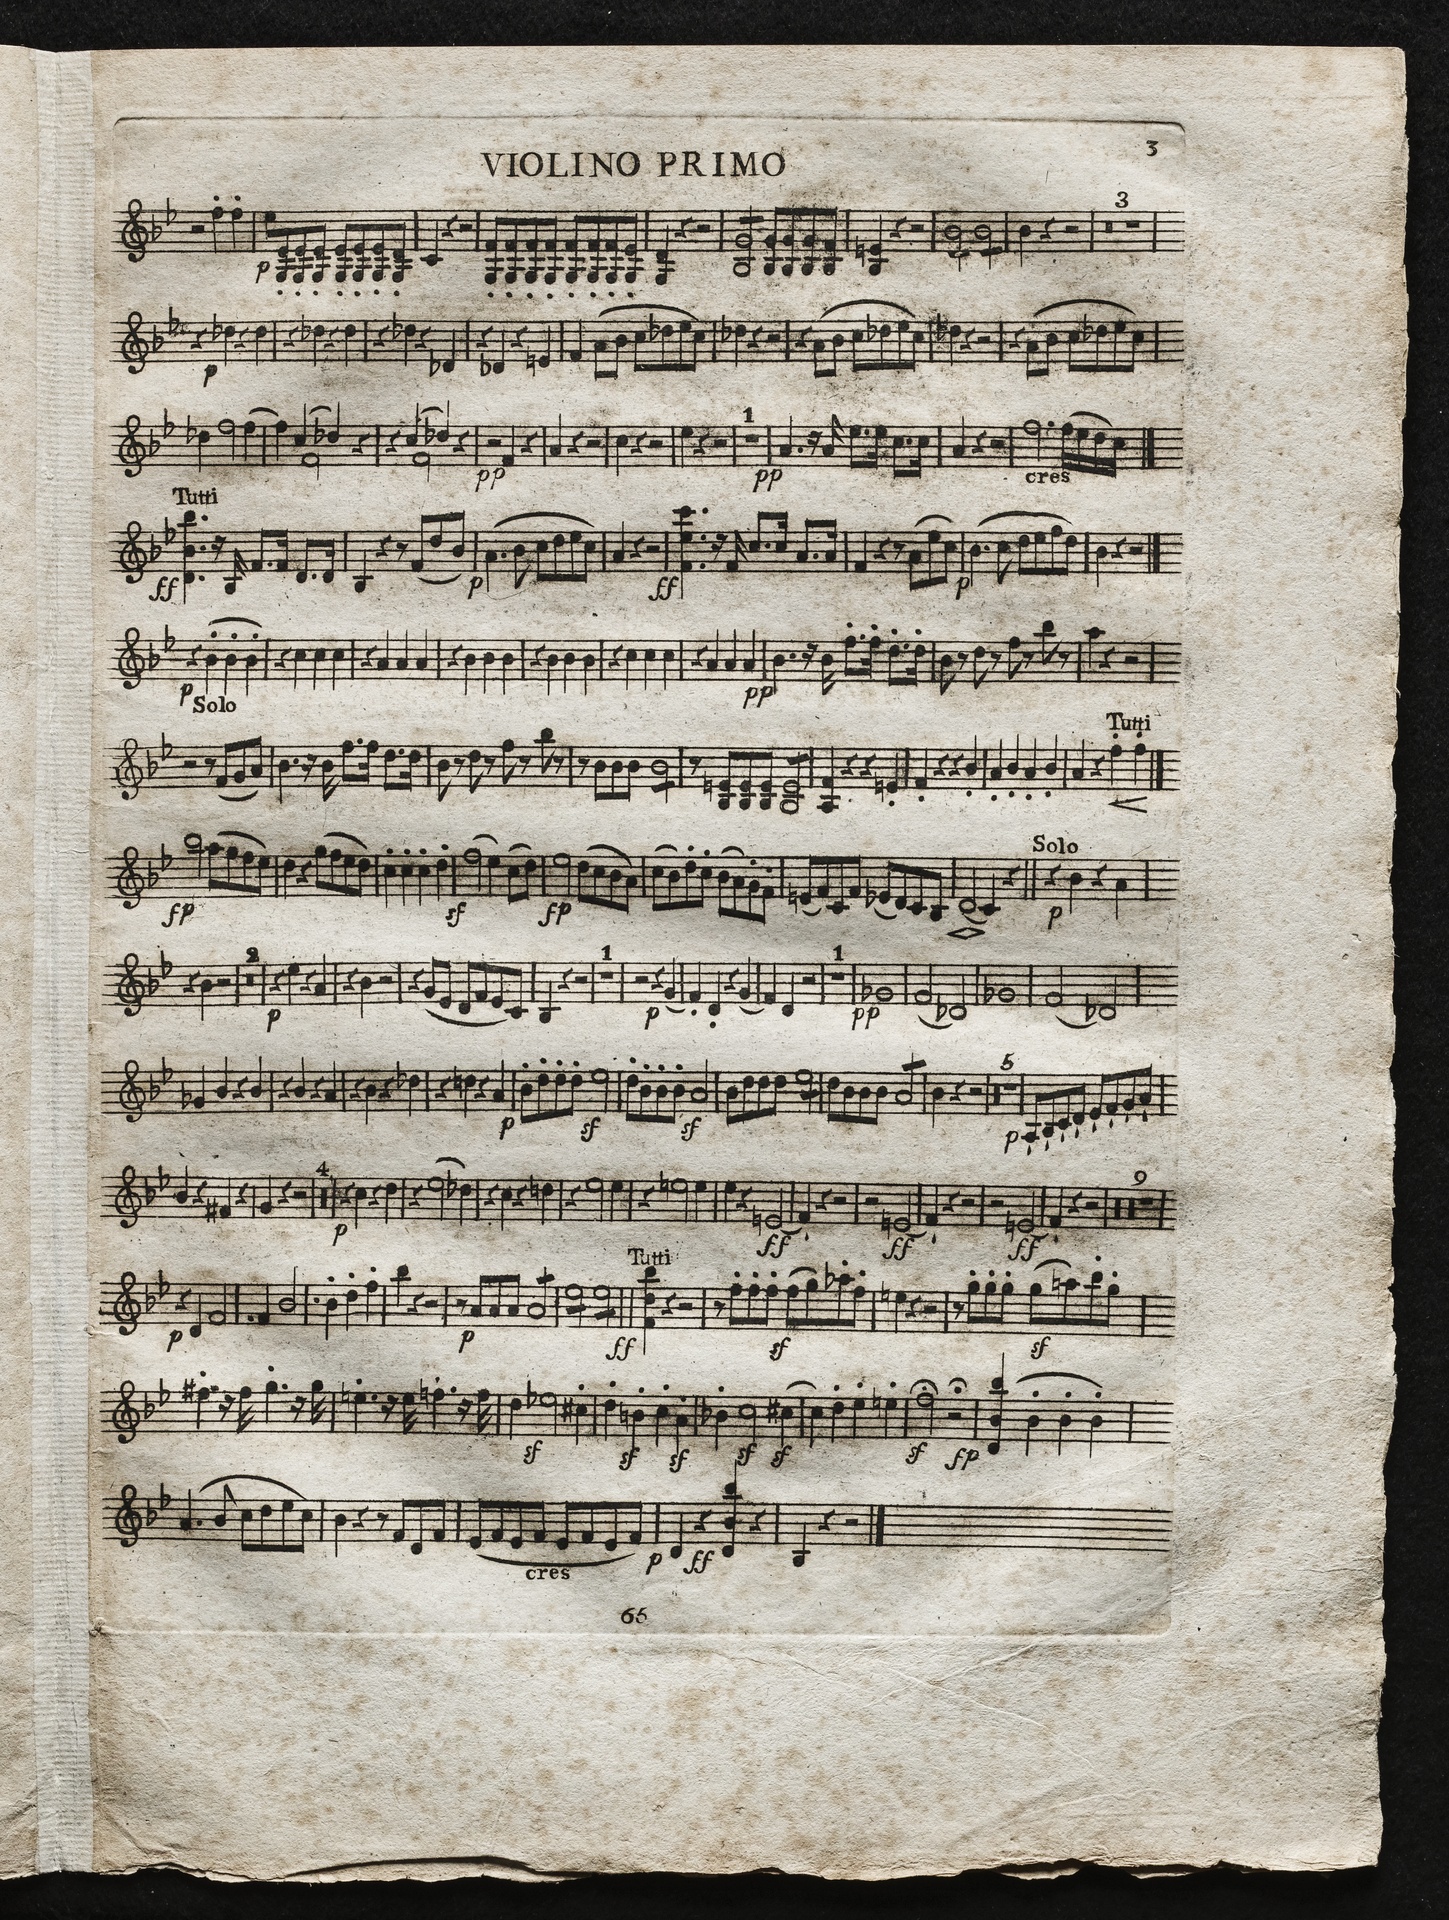 VIOLINO PRIMO
3
3
p
p
1
pp
pp
cres
Tutti
ff
p
ff
p
p
Solo
pp
Tutti
Solo
fp
sf
fp
p
2
1
1
p
p
pp
5
p
sf
sf
p
4
9
p
ff
ff
ff
Tutti
p
p
ff
sf
sf
sf
sf
sf
sf
sf
sf
fp
cres
p
ff
65